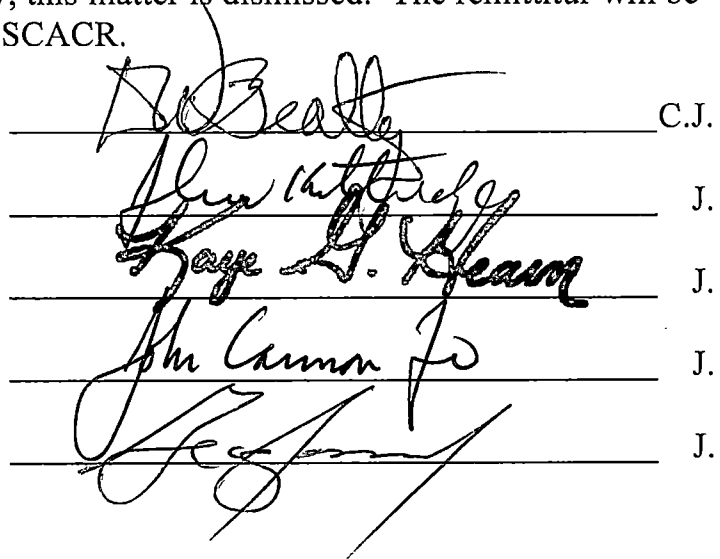 this matter is dismissed. The remittitur will be
SCACR.
D Beatty C.J.
John Kittredge J.
Kaye G. Hearn J.
John Cannon Few J.
J.